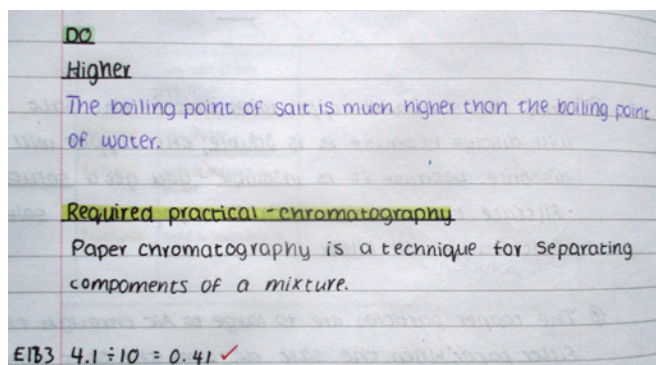 DO
Higher
The boiling point of salt is much higher than the boiling point
of water.
Required practical - chromatography
Paper chromatography is a technique for separating
compoments of a mixture.
E1B3 4.1 ÷ 10 = 0.41 ✓